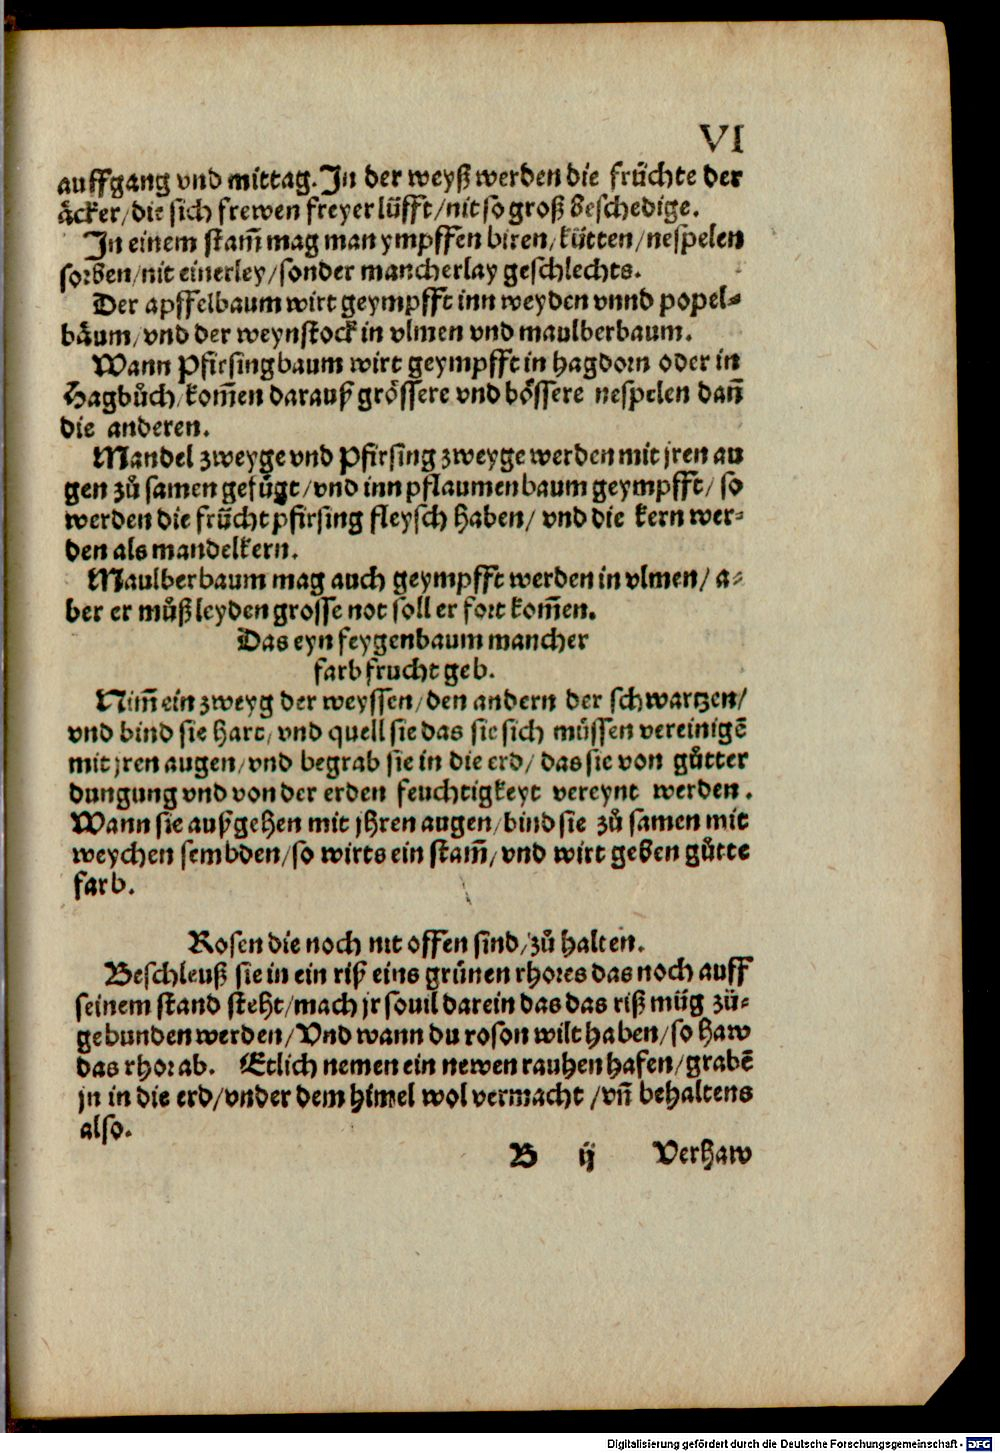 VI
auffgang vnd mittag. In der weyß werden die früchte der
äcker/die sich frewen freyer lüfft/nit so groß beschedige.
In einem stam̃ mag man ympffen biren/kütten/nespelen
sorben/nit einerley/sonder mancherlay geschlechts.
Der apffelbaum wirt geympfft inn weyden vnnd popel-
bäum/vnd der weynstock in vlmen vnd maulberbaum.
Wann Pfirsingbaum wirt geympfft in hagdorn oder in
Hagbůch/kom̃en darauß grössere vnd bössere nespelen dañ
die anderen.
Mandel zweyge vnd Pfirsing zweyge werden mit jren au
gen zů samen gefügt/vnd inn pflaumenbaum geympfft/ so
werden die frücht pfirsing fleysch haben/ vnd die kern wer-
den als mandelkern.
Maulberbaum mag auch geympfft werden in vlmen/ a-
ber er můß leyden grosse not soll er fort kom̃en.
Das eyn feygenbaum mancher
farb frucht geb.
Nim̃ ein zweyg der weyssen/den andern der schwartzen/
vnd bind sie hart/vnd quell sie das sie sich müssen vereinigẽ
mit jren augen/vnd begrab sie in die erd/ das sie von gůtter
dungung vnd von der erden feuchtigkeyt vereynt werden.
Wann sie außgehen mit jhren augen/bind sie zů samen mit
weychen sembden/so wirts ein stam̃/vnd wirt geben gůtte
farb.
Rosen die noch nit offen sind/zů halten.
Beschleuß sie in ein riß eins grünen rhores das noch auff
seinem stand steht/mach jr souil darein das das riß müg zů-
gebunden werden/Vnd wann du roson wilt haben/so haw
das rhor ab. Etlich nemen ein newen rauhen hafen/grabẽ
jn in die erd/vnder dem himel wol vermacht /vñ behaltens
also.
B ij Verhaw
Digitalisierung gefördert durch die Deutsche Forschungsgemeinschaft - DFG